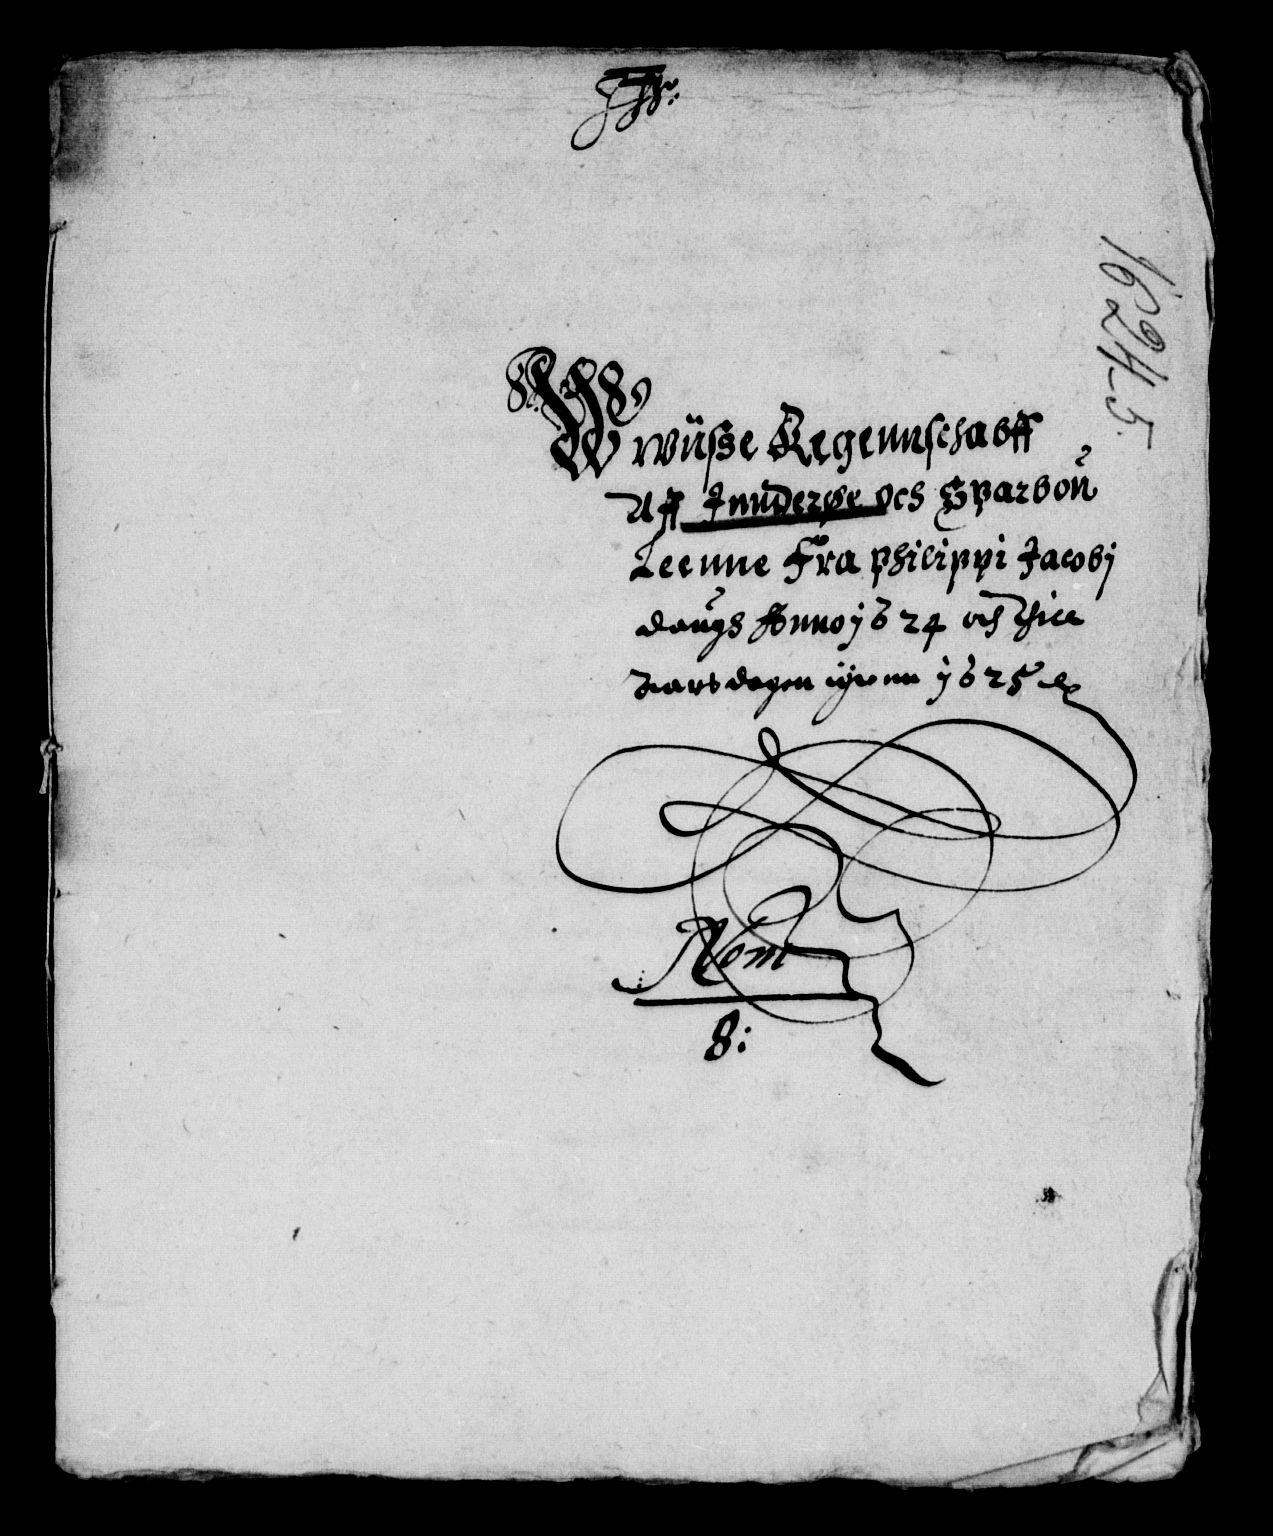 1624-5
Wwüsse Regennschabff
Aff Innderøe och Sparboŭ
Leenne Fra Philippi Jacobj
daugs Anno 1624 och Thill
aarsdagen igienn 1625
Nom
8: